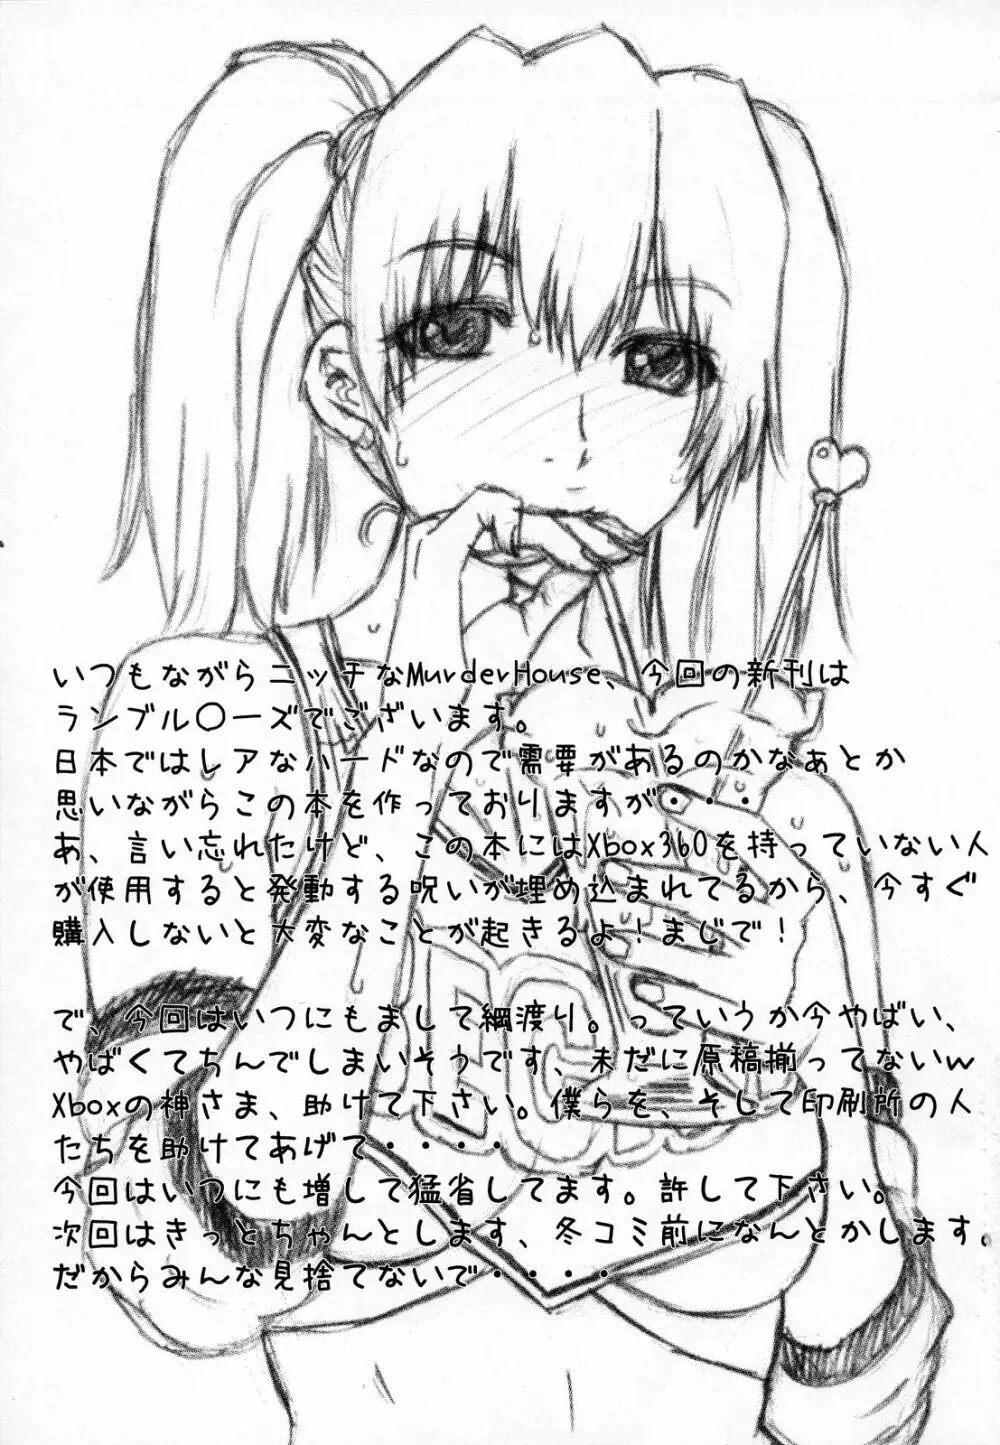 いつもながらニッチなMurderHouse、今回の新刊は
ランブル〇ーズでございます。
日本ではレアなハードなので需要があるのかなぁとか
思いながらこの本を作っておりますが・・・
あ、言い忘れたけど、この本にはXbox360を持っていない人
が使用すると発動する呪いが埋め込まれてるから、今すぐ
購入しないと大変なことが起きるよ！まじで！
で、今回はいつにもまして綱渡り。っていうか今やばい、
やばくてちんでしまいそうです、未だに原稿揃ってないw
Xboxの神さま、助けて下さい。僕らを、そして印刷所の人
たちを助けてあげて・・・・
今回はいつにも増して猛省してます。許して下さい。
次回はきっとちゃんとします、冬コミ前になんとかします。
だからみんな見捨てないで・・・・